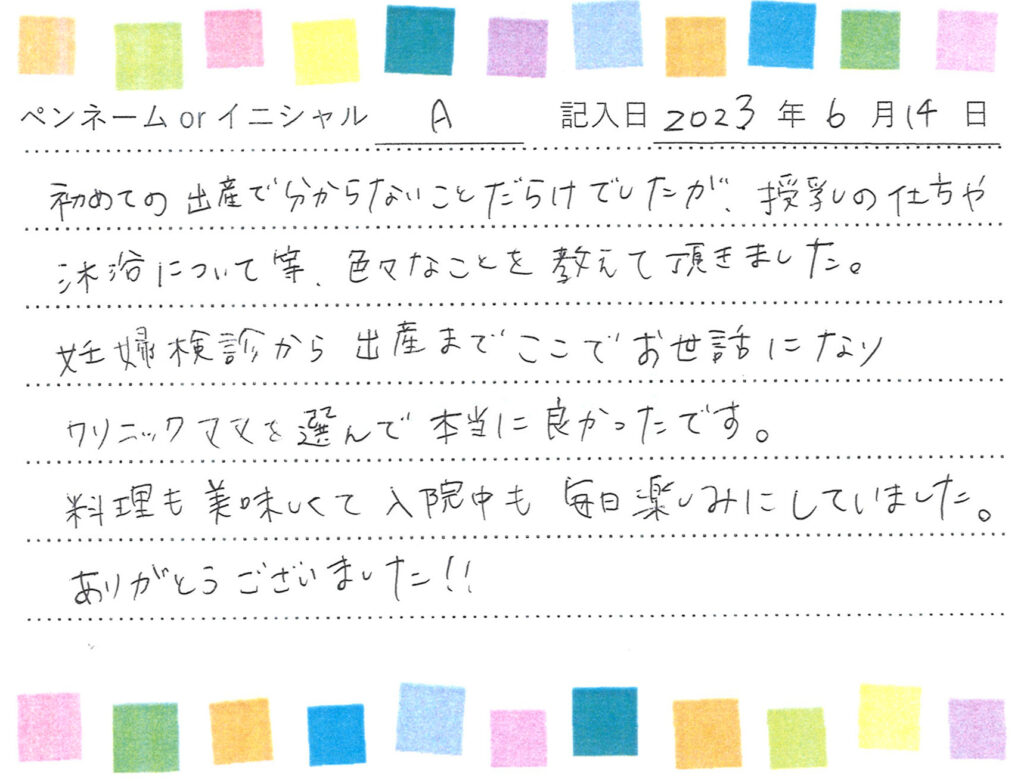 ペンネーム or イニシャル A 記入日 2023 年 6 月 14 日
初めての出産で分からないことだらけでしたが、授乳の仕方や
沐浴について等、色々なことを教えて頂きました。
妊婦検診から出産までここでお世話になり
クリニックママを選んで本当に良かったです。
料理も美味しくて入院中も毎日楽しみにしていました。
ありがとうございました!!